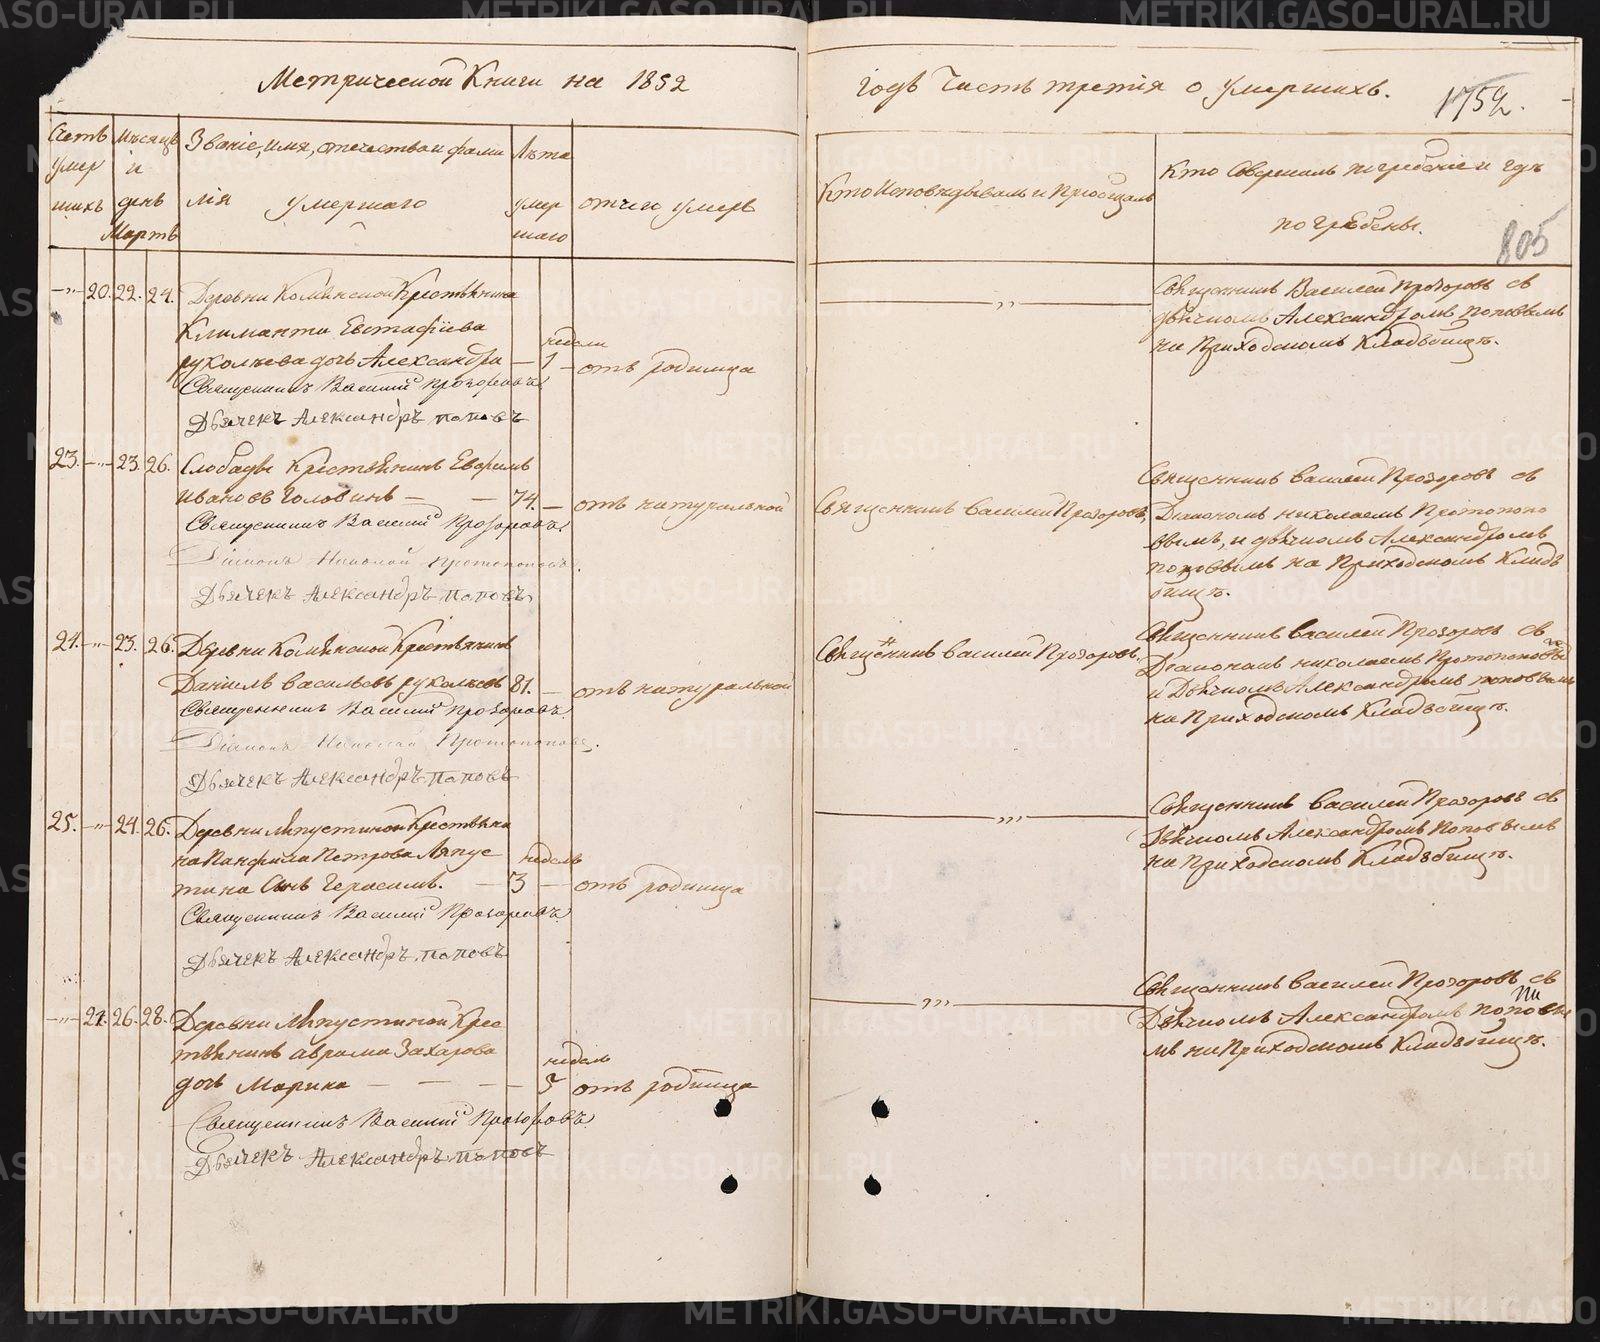 Метрической Книги на 1852
Счетъ умершихъ
Мѣсяцъ и день
Мартъ
Званіе, имя, отечество и фами
лія умершаго
Лѣта умершаго
отчего умеръ
—„— 20. 22. 24. Деревни Комѣнской Крестьянина
Климанта Евстафіева
недели
руколѣева дочь Александра — 1 — отъ родимца
Священникъ Василій Прозоровъ
Дьячекъ Александръ Поповъ
23. —„— 23. 26. Слободы Крестьянинъ Евфимъ
Ивановъ Головинъ — — 74. — отъ натуральной
Священникъ Василій Прозоровъ
Діаконъ Николай Протопоповъ.
Дьячекъ Александръ Поповъ
24. —„— 23. 26. Деревни Комѣнской Крестьянинъ
Даніилъ Васильевъ руколѣевъ 81. — отъ натуральной
Священникъ Василій Прозоровъ
Діаконъ Николай Протопоповъ.
Дьячекъ Александръ Поповъ
25. —„— 24. 26. Деревни Ляпустиной Крестьяни
на Панфила Петрова Ляпус
недель
тина Сынъ Герасимъ. — 3 — отъ родимца
Священникъ Василій Прозоровъ
Дьячекъ Александръ Поповъ
—„— 21. 26. 28. Деревни Ляпустиной Крес
тьянинъ аврама Захарова
недель
дочь Марина — — — — 5 отъ родимца
Священникъ Василій Прозоровъ
Дьячекъ Александръ Поповъ
годъ Часть третія о умершихъ.
1752.
Кто Исповѣдывалъ и Пріобщалъ
Кто Совершалъ погребеніе и гдѣ
погребены.
805
—„— Священникъ Василей Прозоровъ съ
дьячкомъ Александромъ Поповымъ
на Приходскомъ Кладбищѣ.
Священникъ Василей Прозоровъ,
Священникъ Василей Прозоровъ съ
Діакономъ николаемъ Протопопо
вымъ, и дьячкомъ Александромъ
поповымъ на Приходскомъ Клад
бищѣ.
Священникъ Василей Прозоровъ.
Священникъ Василей Прозоровъ съ
Діакономъ николаемъ Протопоповымъ
и Дьячкомъ Александромъ поповымъ
на Приходскомъ Кладбищѣ.
—„— Священникъ Василей Прозоровъ съ
Дьячкомъ Александромъ Поповымъ
на Приходскомъ Кладбищѣ.
—„— Священникъ Василей Прозоровъ съ
Дьячкомъ Александромъ Поповы
мъ на Приходскомъ Кладбищѣ.
METRIKI.GASO-URAL.RU